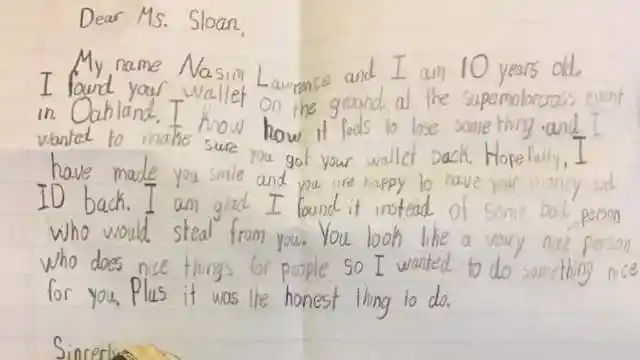 Dear Ms. Sloan,
My name Nasim Lawrence and I am 10 years old.
I found your wallet on the ground at the supermotorcross event
in Oahland. I know how it feels to lose something and I
wanted to make sure you got your wallet back. Hopefully, I
have made you smile and you are happy to have your money and
ID back. I am glad I found it instead of some bad person
who would steal from you. You look like a very nice person
who does nice things for people so I wanted to do something nice
for you. Plus it was the honest thing to do.